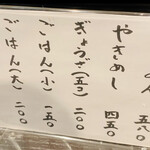 五八〇
やきめし 四五〇
ぎょうざ(五コ) 二〇〇
ごはん(小) 一五〇
ごはん(大) 二〇〇